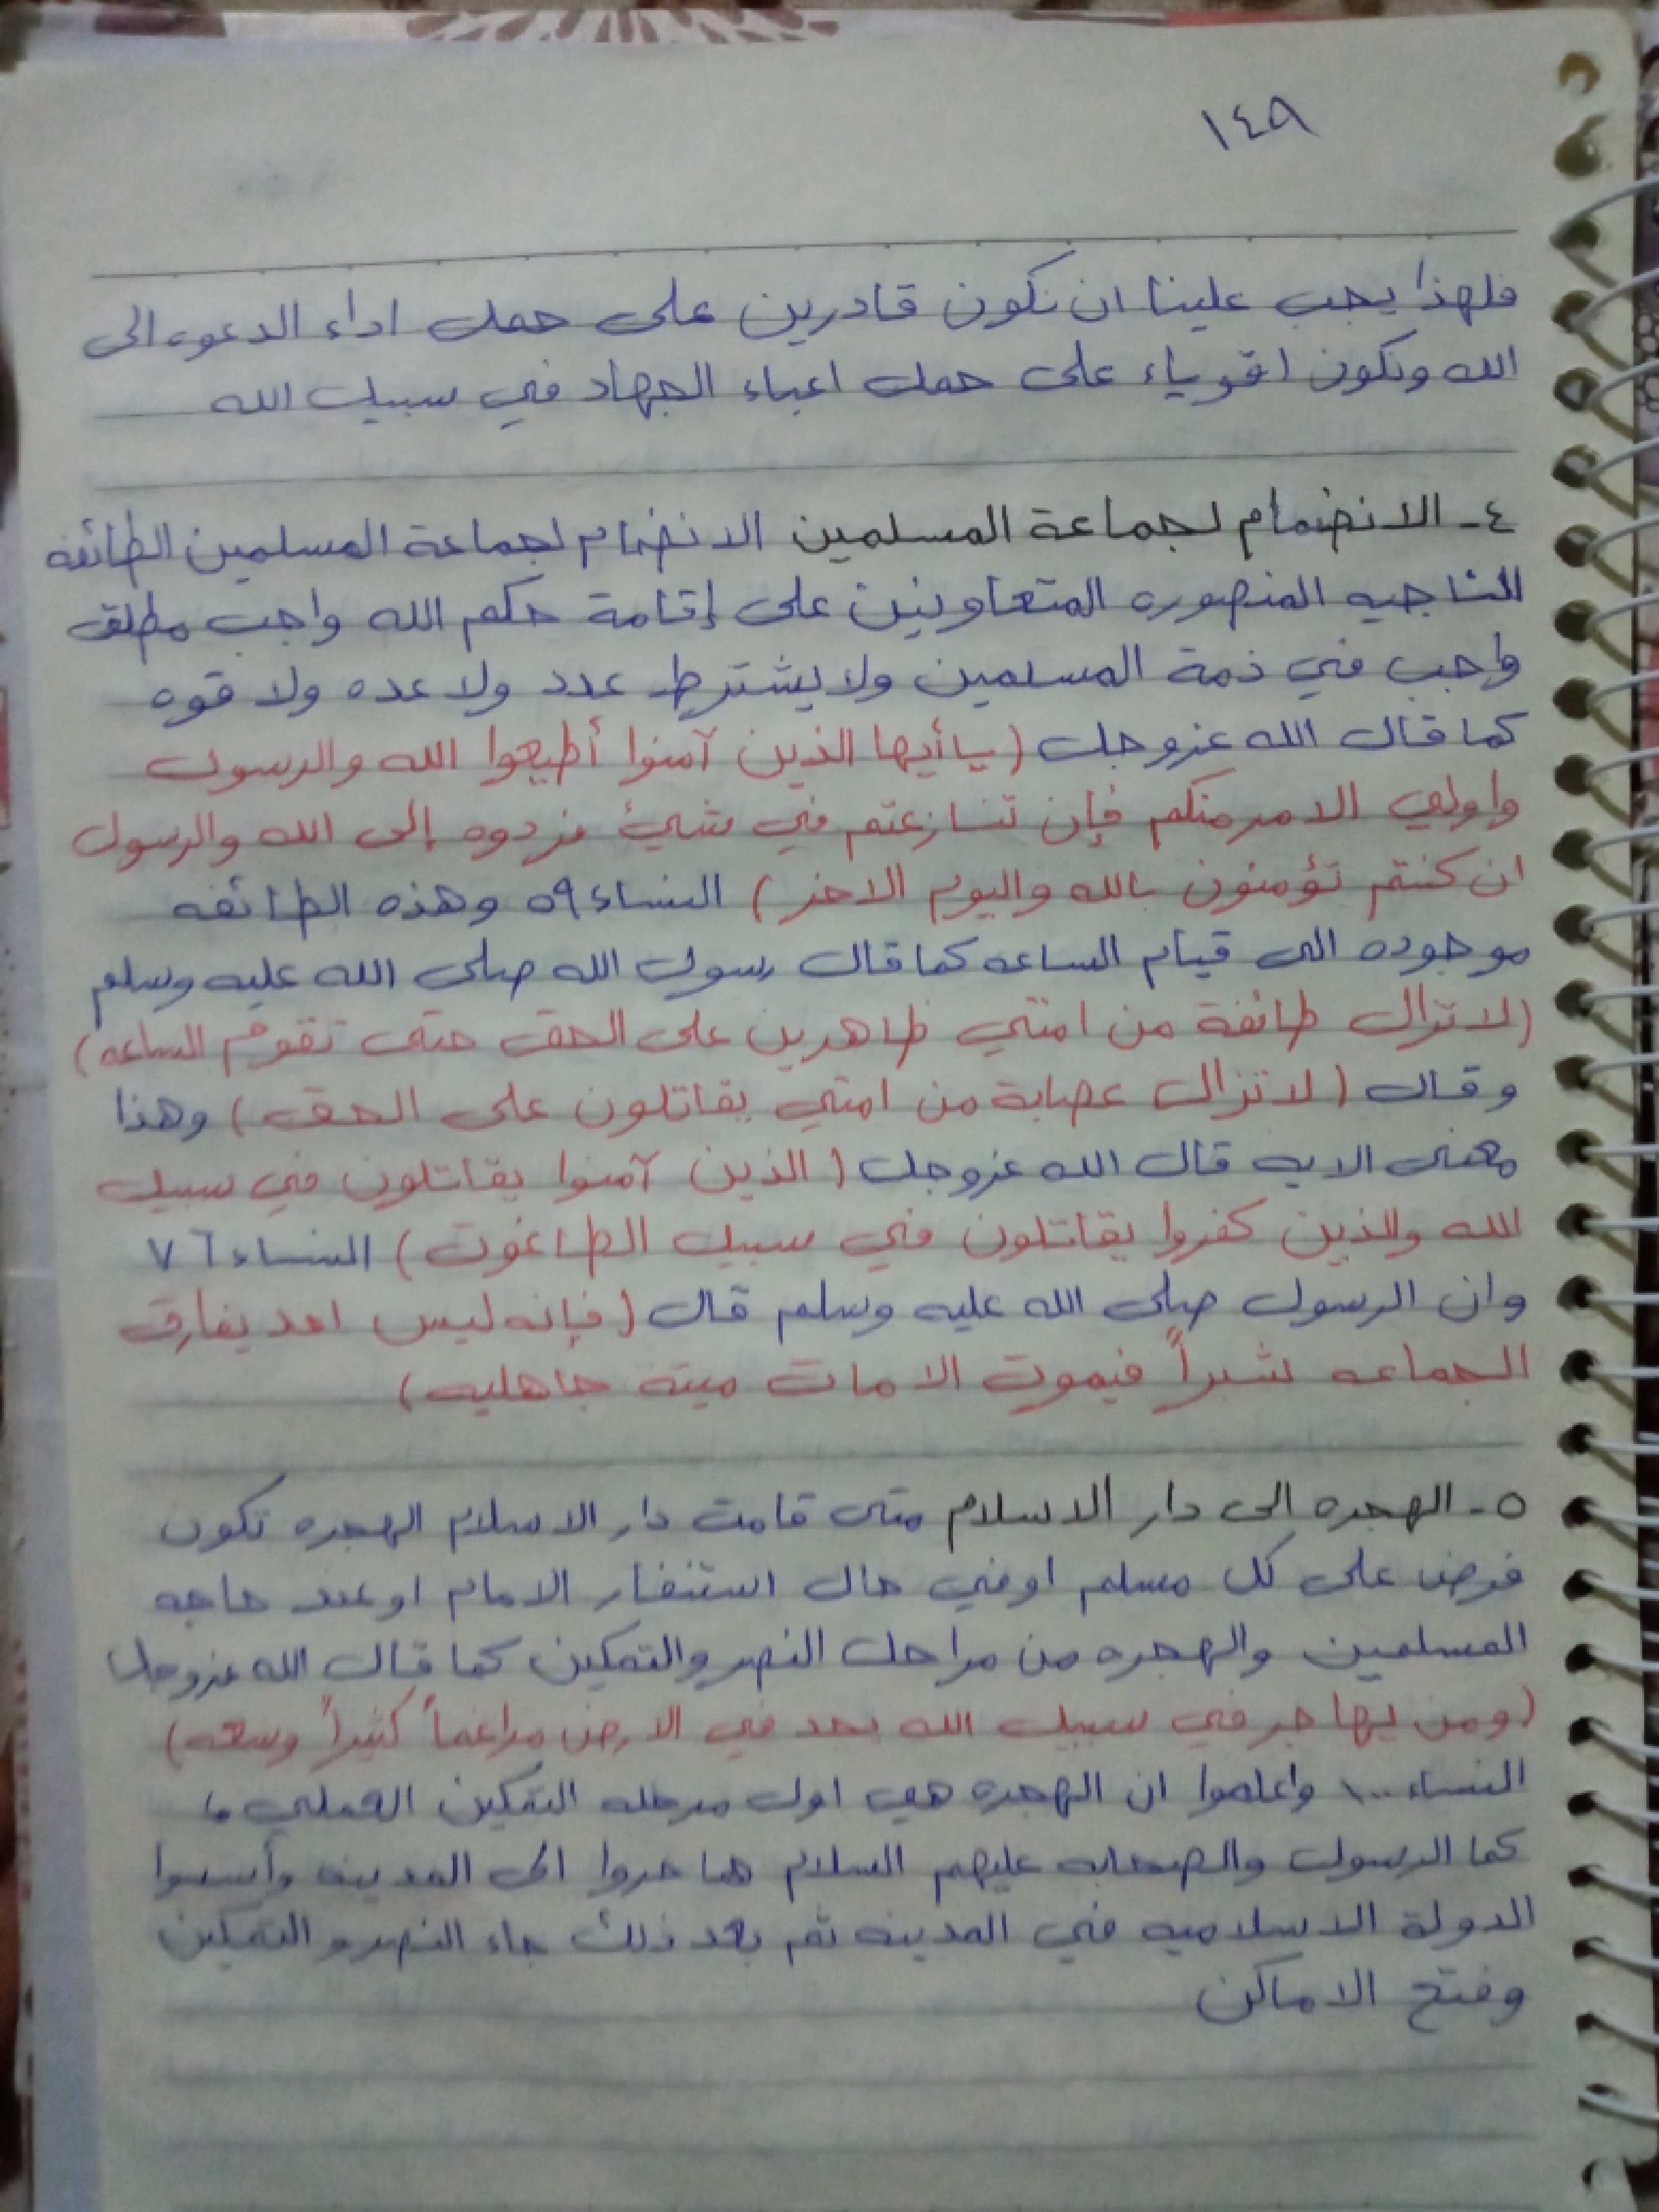 ١٤٩
فلهذا يجب علينا ان نكون قادرين على حمل اداء الدعوه الى
الله ونكون اقوياء على حمل اعباء الجهاد في سبيل الله
٤- الانضمام لجماعة المسلمين الانضمام لجماعة المسلمين الطائفه
الناجيه المنصوره المتعاونين على إقامة حكم الله واجب مطلق
واجب في ذمة المسلمين ولا يشترط عدد ولا عده ولا قوه
كما قال الله عزوجل (يا أيها الذين آمنوا أطيعوا الله والرسول
واولي الامر منكم فإن تنازعتم في شيئ فردوه إلى الله والرسول
ان كنتم تؤمنون بالله واليوم الاخر) النساء ٥٩ وهذه الطائفه
موجوده الى قيام الساعه كما قال رسول الله صلى الله عليه وسلم
(لا تزال طائفة من امتي ظاهرين على الحق حتى تقوم الساعه)
وقال (لا تزال عصابة من امتي يقاتلون على الحق) وهذا
معنى الايه قال الله عزوجل (الذين آمنوا يقاتلون في سبيل
الله والذين كفروا يقاتلون في سبيل الطاغوت) النساء ٧٦
وان الرسول صلى الله عليه وسلم قال (فإنه ليس احد يفارق
الجماعه شبراً فيموت الا مات ميتة جاهليه)
٥- الهجره إلى دار الاسلام متى قامت دار الاسلام الهجره تكون
فرض على كل مسلم او في حال استنفار الامام او عند حاجه
المسلمين والهجره من مراحل النصر والتمكين كما قال الله عزوجل
(ومن يهاجر في سبيل الله يجد في الارض مراغماً كثيراً وسعه)
النساء ١٠٠ واعلموا ان الهجره هي اول مرحله التمكين العملي
كما الرسول والصحابه عليهم السلام هاجروا الى المدينه وأسسوا
الدولة الاسلاميه في المدينه ثم بعد ذلك جاء النصر و التمكين
وفتح الاماكن